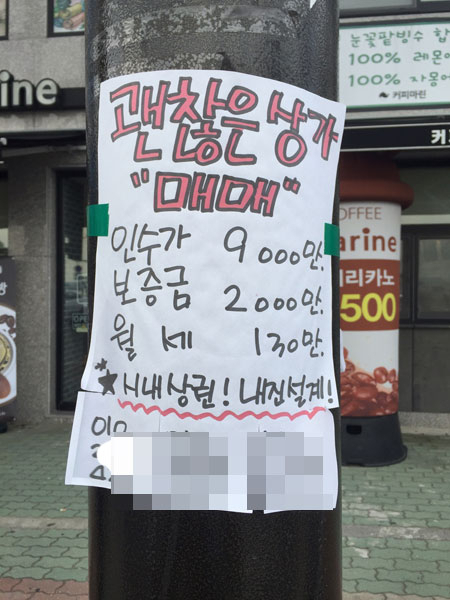 괜찮은 상가
"매매"
인수가 9000만.
보증금 2000만.
월 세 130만.
★시내상권! 내진설계!
눈꽃팥빙수
100% 레몬
100% 자몽
커피마린
rine
커피
COFFEE
arine
리카노
500